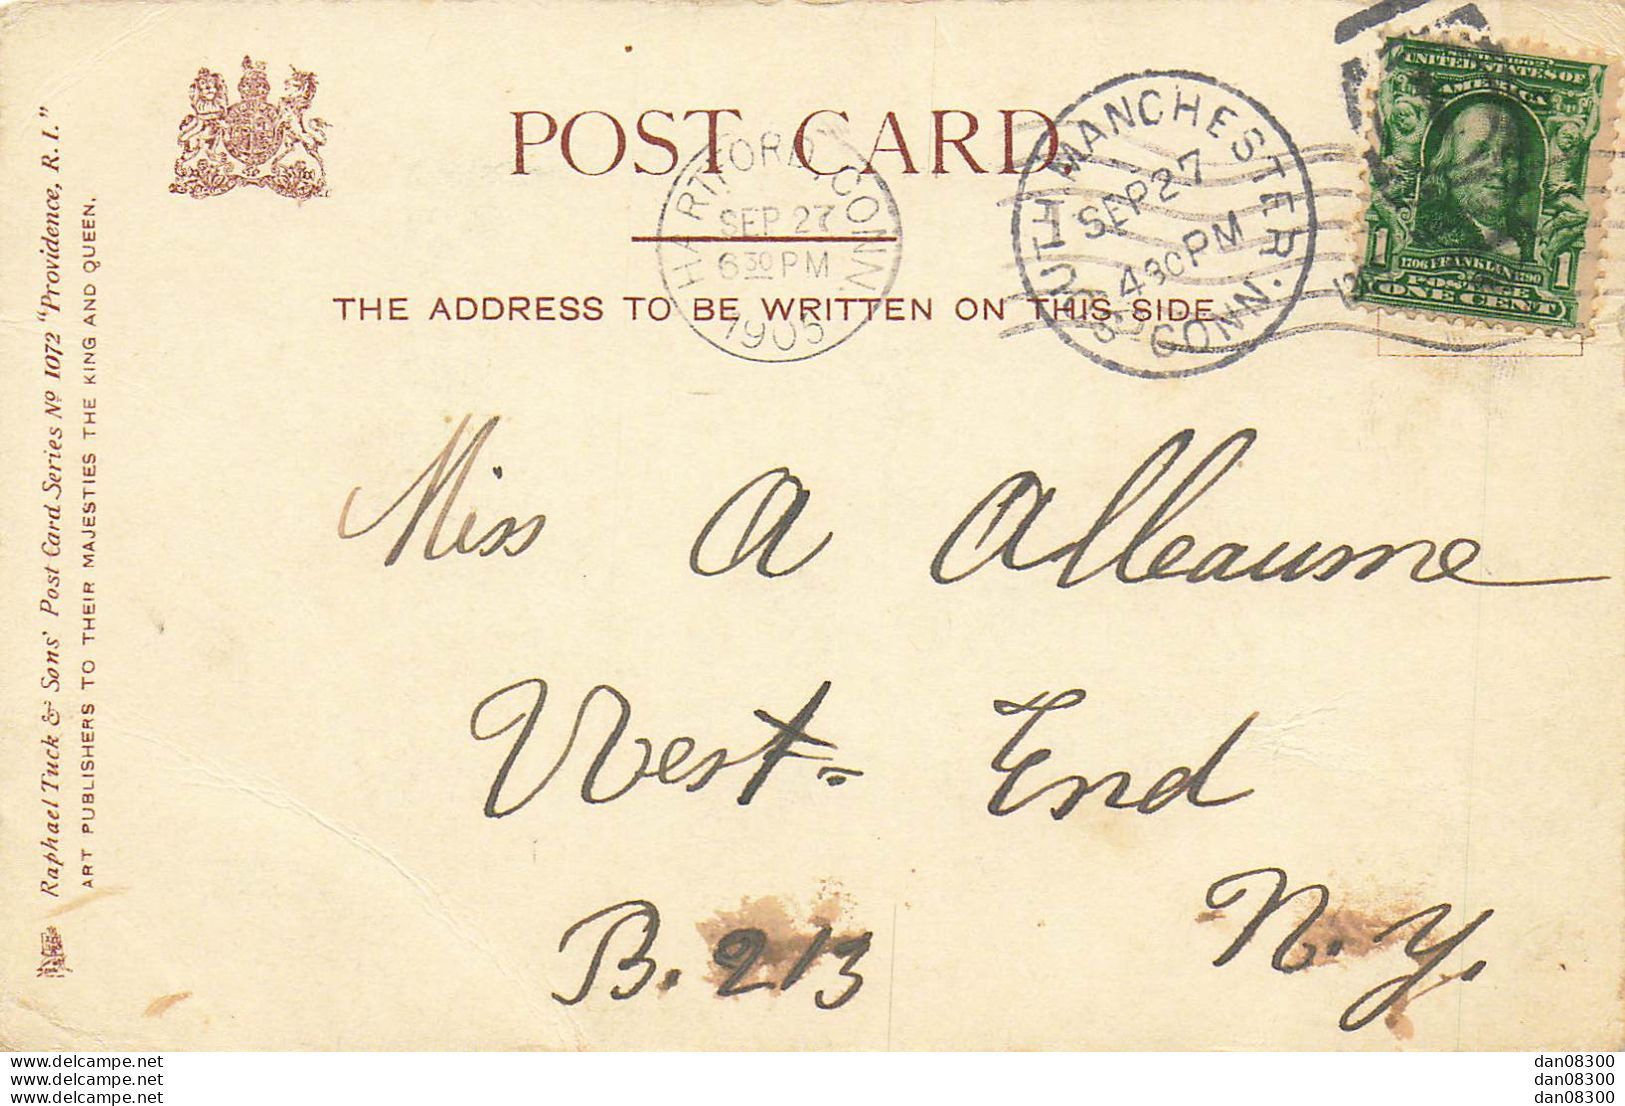 POST CARD.
THE ADDRESS TO BE WRITTEN ON THIS SIDE.
Raphael Tuck & Sons' Post Card Series No 1072 "Providence, R. I."
ART PUBLISHERS TO THEIR MAJESTIES THE KING AND QUEEN.
HARTFORD, CONN.
SEP 27
630 PM
1905
SOUTH MANCHESTER
SEP 27
430PM
CONN.
UNITED STATES OF
AMERICA
1706 FRANKLIN 1790
POSTAGE
1 1
ONE CENT
Miss A Alleaume
West- End
B. 213 N. Y.
www.delcampe.net
www.delcampe.net
www.delcampe.net
dan08300
dan08300
dan08300